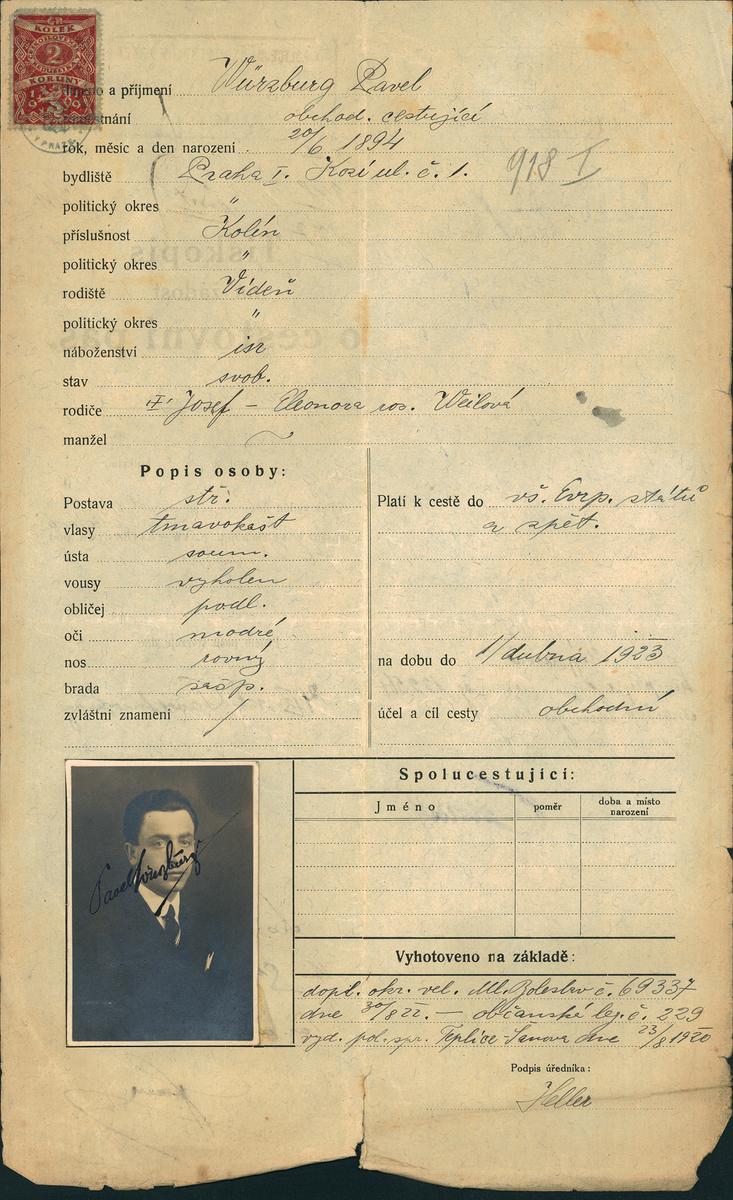 KOLEK
2
KORUNY
1919
V PRAZE
Jméno a příjmení Würzburg Pavel
zaměstnání obchod. cestující
rok, měsíc a den narození 20/6 1894
bydliště Praha I. Kozí ul. č. 1. 918 I
politický okres "
příslušnost Kolín
politický okres "
rodiště Vídeň
politický okres "
náboženství isr
stav svob.
rodiče Josef – Eleonora roz. Weilová
manžel
Popis osoby:
Postava stř.
vlasy tmavokašt
ústa soum.
vousy vyholen
obličej podl.
oči modré
nos rovný
brada
zvláštní znamení /
Platí k cestě do vš. Evrp. států
a zpět.
na dobu do 1/dubna 1923
účel a cíl cesty obchodní
Pavel Würzburg
Spolucestující:
Jméno poměr doba a místo narození
Vyhotoveno na základě:
dopl. okr. vel. Ml. Boleslav č. 69337
dne 30/8 22. — občanské leg. č. 229
vyd. pol. spr. Teplice Šanova dne 23/8 1920
Podpis úředníka:
Heller